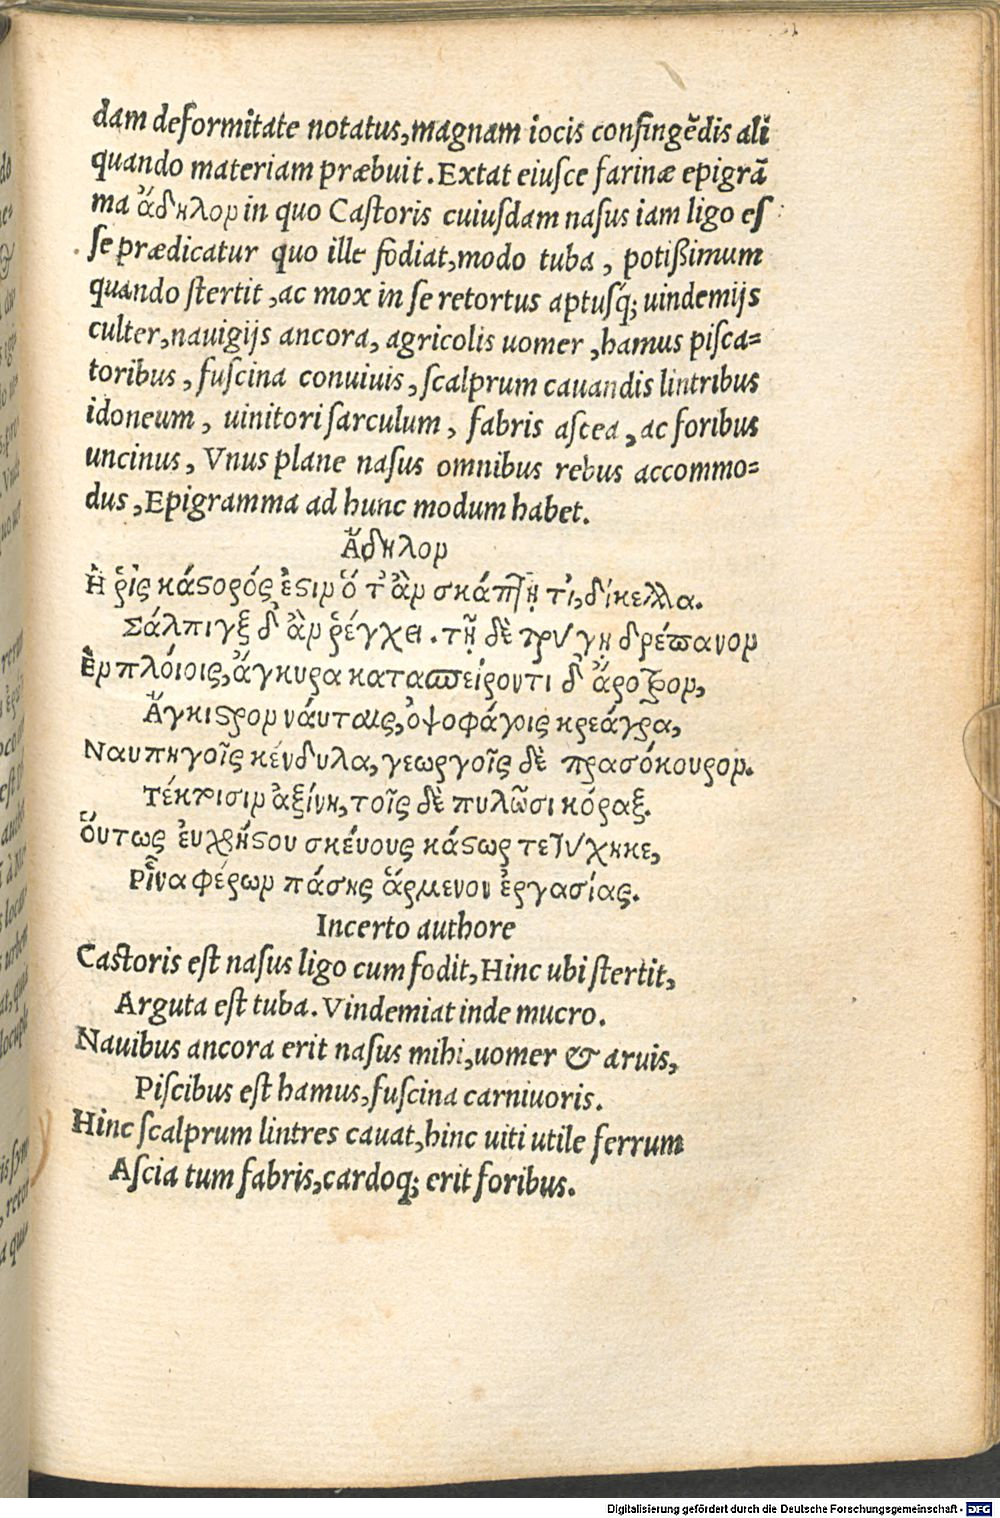 dam deformitate notatus,magnam iocis confingẽdis ali
quando materiam præbuit.Extat eiusce farinæ epigrã
ma ἄδηλον in quo Castoris cuiusdam nasus iam ligo es
se prædicatur quo ille fodiat,modo tuba, potißimum
quando stertit,ac mox in se retortus aptusq́; uindemijs
culter,nauigijs ancora, agricolis uomer,hamus pisca=
toribus, fuscina conuiuis, scalprum cauandis lintribus
idoneum, uinitori sarculum, fabris ascea, ac foribus
uncinus, Vnus plane nasus omnibus rebus accommo=
dus,Epigramma ad hunc modum habet.
Ἄδηλον
Ἡ ῥὶς κάϛορός ἐϛιν ὅ τ' ἂν σκάπτῃ τι,δίκελλα.
Σάλπιγξ δ' ἂν ῥέγχει. τῇ δὲ τρύγῃ δρέπανον
Ἐν πλόιοις,ἄγκυρα κατασπείροντι δ' ἄροτρον,
Ἄγκιϛρον νάυταις,ὀψοφάγοις κρεάγρα,
Ναυπηγοῖς κένδυλα,γεωργοῖς δὲ πρασόκουρον.
Τέκτοισιν ἀξίνη,τοῖς δὲ πυλῶσι κόραξ.
ὅυτως ἐυχρήϛου σκέυους κάϛωρ τετύχηκε,
Ῥῖνα φέρων πάσης ἅρμενον ἐργασίας.
Incerto authore
Castoris est nasus ligo cum fodit,Hinc ubi stertit,
Arguta est tuba.Vindemiat inde mucro.
Nauibus ancora erit nasus mihi,uomer & aruis,
Piscibus est hamus,fuscina carniuoris.
Hinc scalprum lintres cauat,hinc uiti utile ferrum
Ascia tum fabris,cardoq; erit foribus.
Digitalisierung gefördert durch die Deutsche Forschungsgemeinschaft - DFG